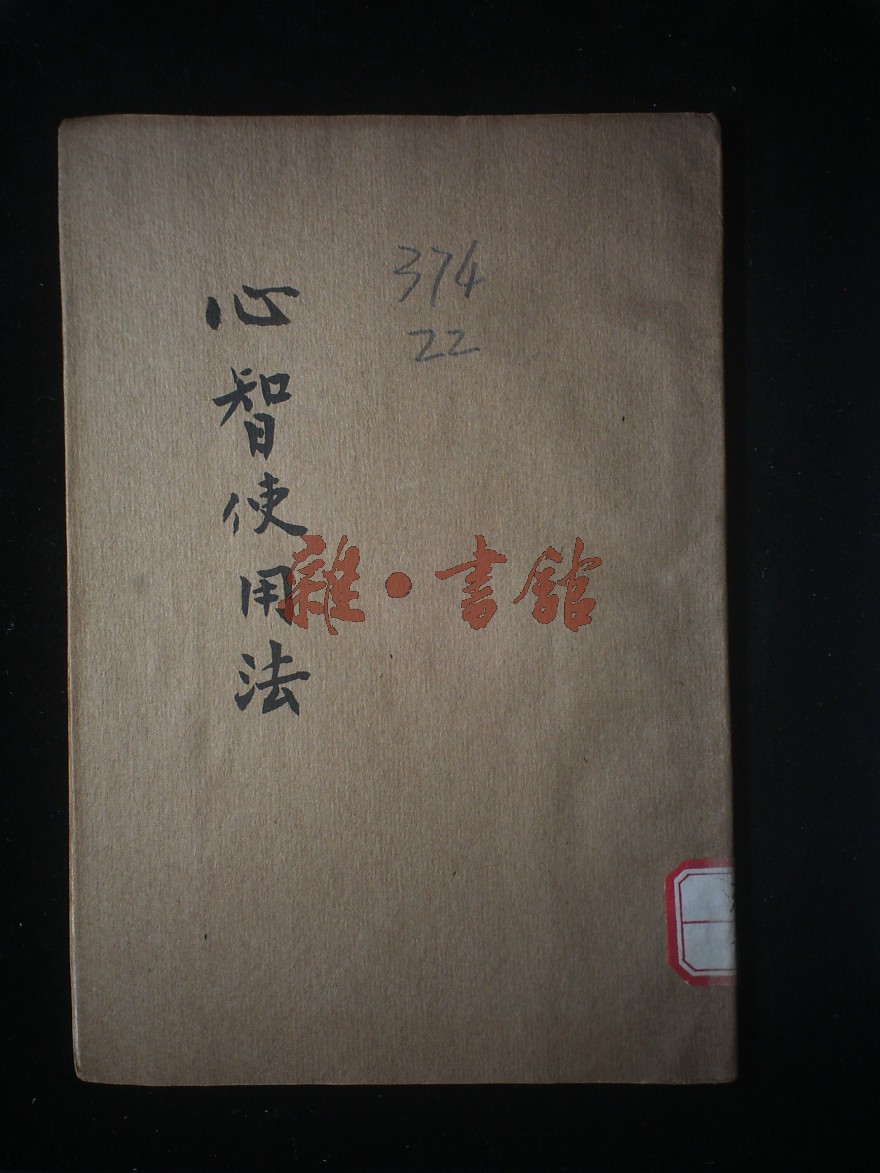 374
22
心智使用法
雜·書館